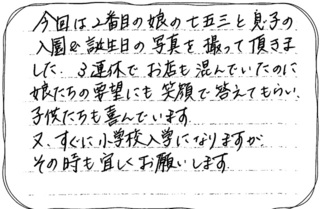 今回は2番目の娘の七五三と息子の
入園&誕生日の写真を撮って頂きま
した。3連休でお店も混んでいたのに
娘たちの要望にも笑顔で答えてもらい、
子供たちも喜んでいます。
又、すぐに小学校入学になりますが、
その時も宜しくお願いします。